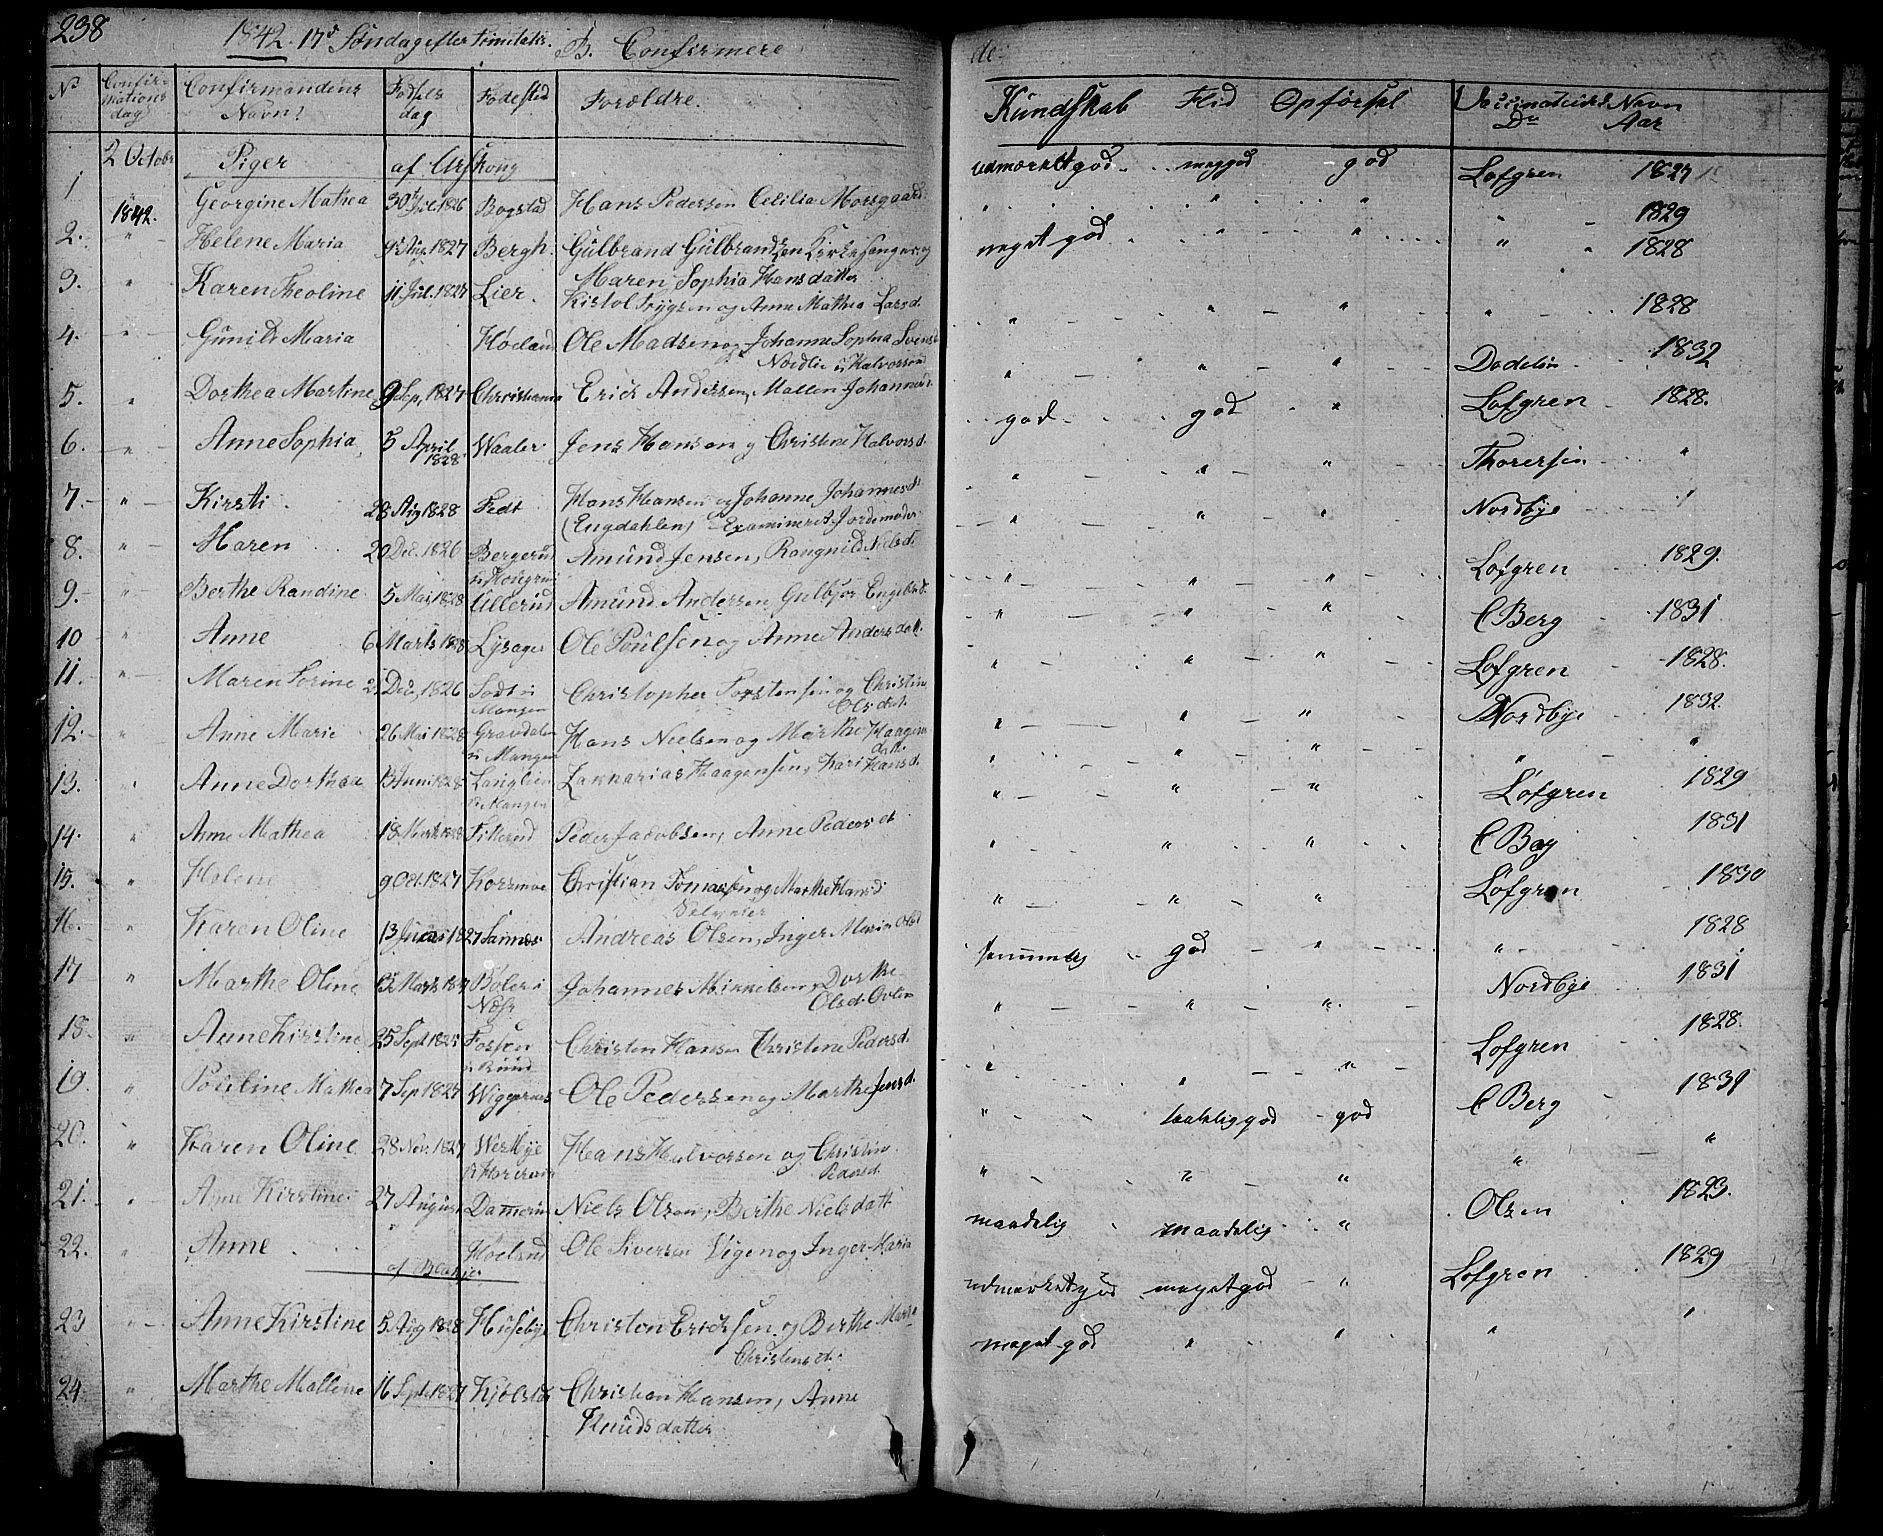 238
1842. 17d Søndag efter Trinitatis. B. Confirmere de
No Confirmations dag Confirmandens Navn Fødsels dag Fødested Forældre. Kundskab Flid Opførsel Navn
Du Aar
2 Octobr Piger af Urskoug
1 1842. Georgine Mathea 30 Jul. 1826 Bogstad Hans Pedersen Cecilia Morsgaard udmærket god meg. god god Lofgren 1827
2. " Helene Maria 9 Aug. 1827 Bergh. Gulbrand Gulbrandsen Kirkesanger og " " " 1829
Maren Sophia Hansdatter
3. " Karen Theoline 11 Jul. 1827 Lier. Kistol Trygsen og Anne Mathea Larsd. meget god " " " 1828
4. " Gunild Maria Høland Ole Madsen og Johanne Sophia Svensd " " " " 1828
Nordlie Halvorsrud
5. " Dorthea Martine 9 Sep. 1827 Christiania Erick Andersen, Mallen Johannesd. " " " Dødelin 1832
6. " Anne Sophia 5 April 1828 Waaler Jens Hansen og Christine Halvorsd. god god " Lofgren 1828.
7. " Kirsti 28 Aug 1828 Fedt Hans Hansen og Johanne Johannesd " " " Thoresen "
(Engdahlen) Examineret Jordemoder
8. " Maren 20 Dec. 1826 Bergerud Amund Jensen, Rangnild Nielsd. " " " Nordbye
9. " Berthe Randine 5 Mai 1828 Ullerud Amund Andersen, Gulbjør Engebrd. " " " Lofgren 1829.
10 " Anne 6 Marts 1828 Lysager Ole Poulsen og Anne Andersdatt. " " " C Berg 1831
11. " Maren Sorine 2 Dec, 1826 Sodt i Mangen Christopher Torstensen og Christine Olsdat. " " " Lofgren 1828.
12. " Anne Marie 26 Mai 1828 Gravdalen i Mangen Hans Nielsen og Marthe Haagens datt. " " " Nordbye 1832.
13. " Anne Dorthea 13 Juni 1828 Langlien i Mangen Zakkarias Haagensen, Kari Hansd. " " " " "
14. " Anne Mathea 18 Marts 1828 Fikerud Peder Jacobsen, Anne Pedersdt. " " " Lofgren 1829
15. " Helene 9 Oct. 1827 Korsmoe Christian Tomassen og Marthe Hansd " " " C Berg 1831
16. " Karen Oline 13 Juni 1827 Sannes Andreas Olsen, Inger Maria Olsd " " " Lofgren 1830
17 " Marthe Oline 13 Marts 1827 Böler i Næs Johannes Mikkelsen Dorthe Olsd. temmelig god " " 1828
18. " Anne Kirstine 25 Sept 1828 Fossen Christen Hansen Christine Pedersd. " " " Nordbye 1831
19. " Pouline Mathea 7 Sep 1827 Wiggernes Ole Pedersen og Marthe Jensd. " " " Lofgren 1828.
20. " Karen Oline 28 Nov. 1827 Westbye Hans Halvorsen og Christine Pedersd. " taalelig god god C Berg 1831
21. " Anne Kirstine 27 August Damerud Niels Olsen, Berthe Nielsdatt " " " " "
22. " Anne Høeland Ole Siversen Vigen og Inger Maria maadelig maadelig " Olsen 1823.
af Blakjer
23 " Anne Kirstine 5 Aug 1828 Husebye Christen Ericksen og Berthe Marie Christensdt. udmærket god meget god " Lofgren 1829
24. " Marthe Mallene 16 Sept. 1827 Kjølstad Christian Hansen, Anne meget god " " " "
Knudsdatter